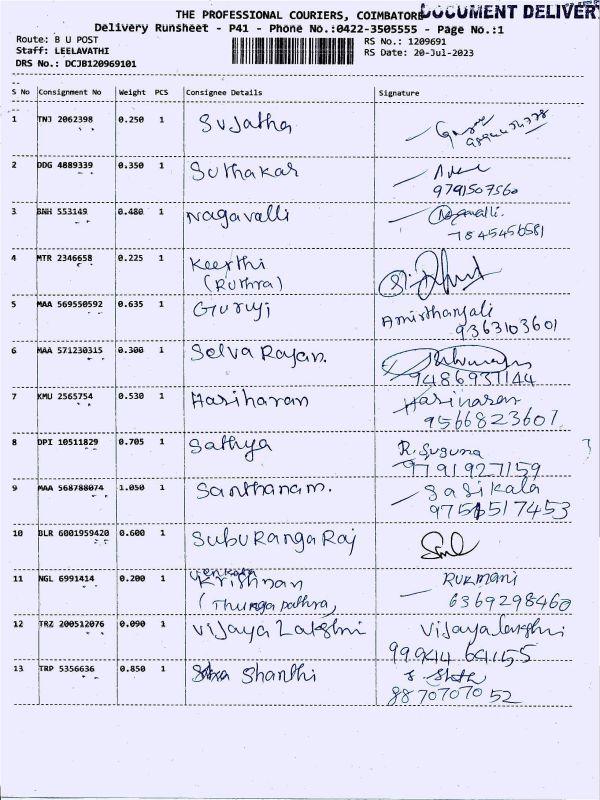 THE PROFESSIONAL COURIERS, COIMBATORE DOCUMENT DELIVERY
Delivery Runsheet - P41 - Phone No.:0422-3505555 - Page No.:1
Route: B U POST
RS No.: 1209691
Staff: LEELAVATHI
RS Date: 20-Jul-2023
DRS No.: DCJB120969101
S No Consignment No Weight PCS Consignee Details Signature
1 TNJ 2062398 0.250 1 Sujatha
2 DDG 4889339 0.350 1 Suthakar
9791507560
3 BNH 553149 0.480 1 Nagavalli Nagavalli.
7845456581
4 MTR 2346658 0.225 1 Keerthi
(Ruthra)
5 MAA 569550592 0.635 1 Guruji Amirthanjali
9363103601
6 MAA 571230315 0.300 1 Selva Rajan.
9486931144
7 KMU 2565754 0.530 1 Hariharan Hariharan
9566823607
8 DPI 10511829 0.705 1 Sathya R. Suguna
9791927159
9 MAA 568788074 1.050 1 Santhanam. Sasikala
9756517453
10 BLR 6001959420 0.600 1 Subu Ranga Raj
11 NGL 6991414 0.200 1 Venkata Krishnan Rukmani
(Thunga pathra) 6369298460
12 TRZ 200512076 0.090 1 Vijaya Lakshmi Vijayalakshmi
99944 64155
13 TRP 5356636 0.850 1 Shanthi
8870707052